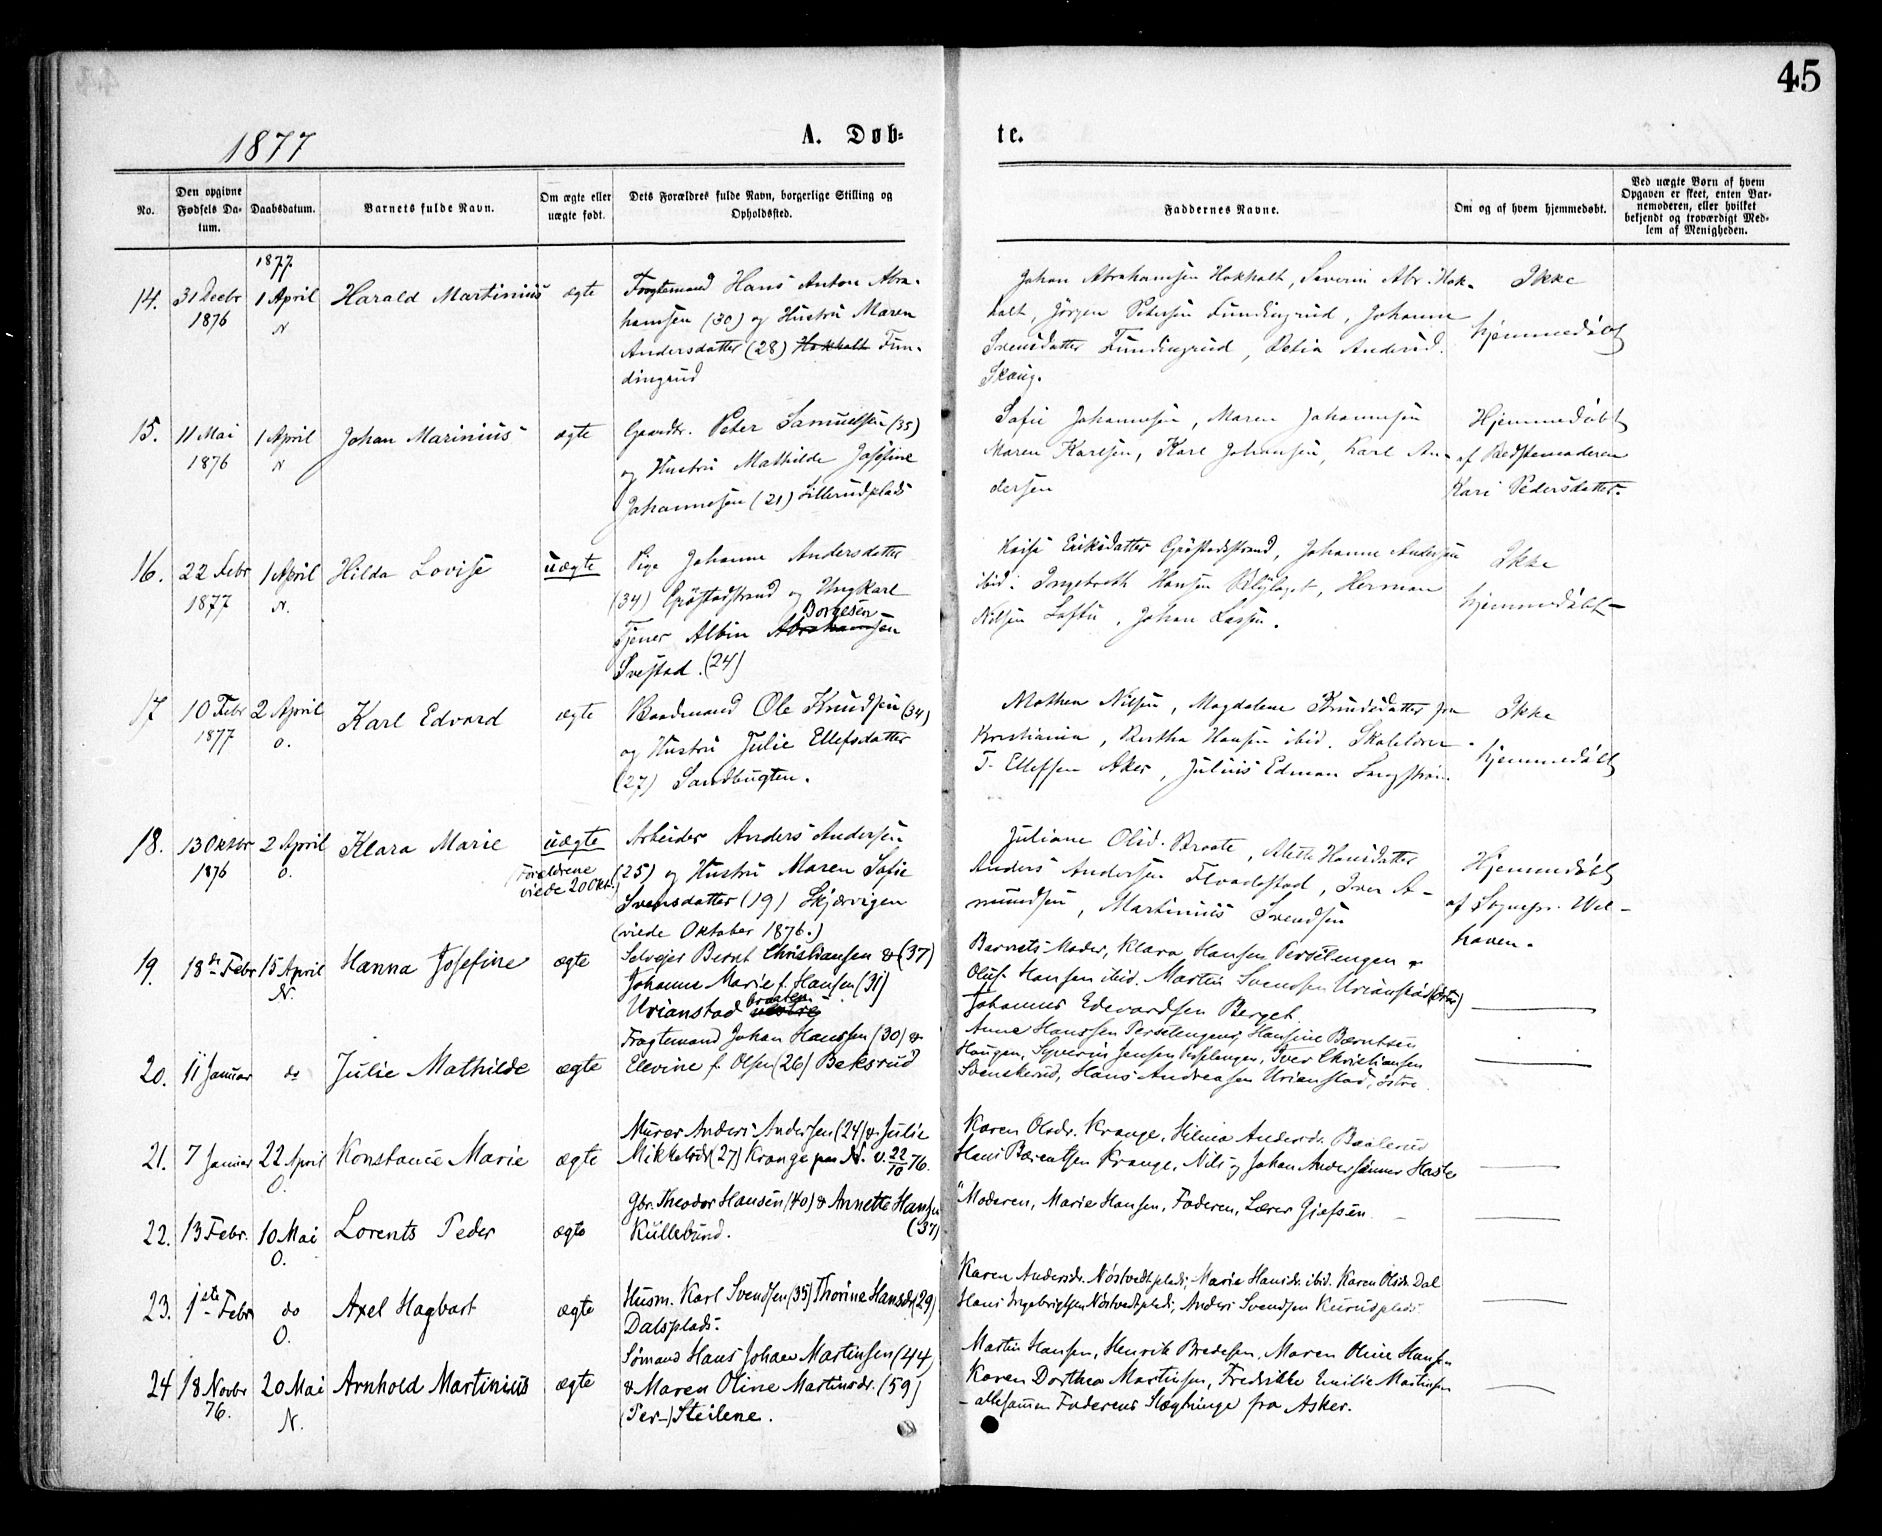 45
1877
A. Døb-
te.
No.
Den opgivne
Fødsels Da-
tum.
Daabsdatum.
Barnets fulde Navn.
Om ægte eller
uægte født.
Dets Forældres fulde Navn, borgerlige Stilling og
Opholdssted.
Faddernes Navne.
Om og af hvem hjemmedøbt.
Ved uægte Børn af hvem
Opgaven er skeet, enten Bar-
nemoderen, eller hvilket
bekjendt og troværdigt Med-
lem af Menigheden.
14.
31 Decbr
1876
1877
1 April
N
Harald Martinius
ægte
Fragtemand Hans Anton Abra-
hamsen (30) og Hustru Maren
Andersdatter (28) Hokholt Fun-
dingrud
Johan Abrahamsen Hokholt, Severin Abr. Hok-
holt, Jörgen Petersen Fundingrud, Johanne
Svensdatter Fundingrud, Petia Andersd.
Skaug.
Ikke
hjemmedøbt
15.
11 Mai
1876
1 April
N
Johan Marinius
ægte
Gaardbr. Peter Samuelsen (35)
og Hustru Mathilde Josefine
Johannesen (21) Lillerudplads
Sofie Johannesen, Maren Johannesen
Maren Karlsen, Karl Johansen, Karl An-
dersen
Hjemmedøbt
af Bedstemoderen
Kari Pedersdatter.
16.
22 Febr
1877
1 April
N.
Hilda Lovise
uægte
Pige Johanne Andersdatter
(34) Grøstadstrand og Ungkarl
Borgesen
Tjener Albin Abrahamsen
Svestad. (24)
Kaisa Eriksdatter Grøstadstrand, Johanne Andersen
ibid. Ingebreth Hansen, Herman
Nilsen Loftu, Johan Lassen.
Ikke
hjemmedøbt-
17
10 Febr
1877
2 April
O.
Karl Edvard
ægte
Baadmand Ole Knudsen (34)
og Hustru Julie Ellefsdatter
(27) Sandbugten.
Mathea Nilsen, Magdalene Knudsdatter fra
Kristiania, Bertha Hansen ibid. Skolelærer
T. Ellefsen Aker, Julius Edman Langstrøm
Ikke
hjemmedøbt
18.
13 Oktbr
1876
2 April
O.
Klara Marie
uægte
(Forældrene
viede 20 Okt.)
Arbeider Anders Andersen
(25) og Hustru Maren Sofie
Svensdatter (19) Skjærvigen
(viede Oktober 1876.)
Juliane Olsd. Braate, Alette Hansdatter
Anders Andersen Flaadestad, Iver A-
mundsen, Martinius Svendsen
Hjemmedøbt
af Sognepr. Wel-
haven.
19.
18de Febr
15 April
N.
Hanna Josefine
ægte
Selvejer Bernt Christiansen & (37)
Johanne Marie f. Hansen (31)
Urianstad braaten
Barnets Moder, Klara Hansen Perselengen &
Oluf Hansen ibid. Martin Svendsen Urianstad (østre)
Johannes Edevardsen Berget.
20.
11 Januar
do
Julie Mathilde
ægte
Fragtemand Johan Hanssen (30) &
Elevine f. Olsen (26) Beksrud
Anne Hanssen Perselengen, Hansine Bærntsen
Haugen, Syverin Jensen Perselengen, Iver Christiansen
Svenskerud, Hans Andreasen Urianstad, østre.
21.
7 Januar
22 April
O.
Konstance Marie
ægte
Murer Anders Andersen (24) & Julie
Mikkelsdr (27) Krange paa N. v. 22/10 76.
Karen Olsdr. Krange, Hilma Andersdr. Baalerud
Hans Bærentsen Krange, Nils og Johan Andersønner Hasle
22.
13 Febr.
10 Mai
O.
Lorents Peder
ægte
Gbr. Theodor Hansen (40) & Annette Hansen
Küllebund. (37)
Moderen, Marie Hansen, Faderen, Lærer Giefsen
23.
1ste Febr
do
O.
Axel Hagbart
ægte
Husm. Karl Svendsen (35) Thorine Hansdr (29)
Dalsplads.
Karen Andersdr. Nöstvedtplads, Marie Hansdr. ibid. Karen Olsdr. Dal
Hans Ingebrigtsen Nöstvedtplads, Anders Svendsen Kurudplads.
24
18 Novbr
76.
20 Mai
N.
Arnhold Martinius
ægte
Sømand Hans Johan Martinsen (44)
& Maren Oline Martinsdr. (59)
(Per-) Steilene.
Martin Hansen, Henrik Bredesen, Maren Oline Hansen
Karen Dorthea Martinsen, Fredrikke Emilie Martinsen
- allesammen Faderens Slægtninge fra Asker.